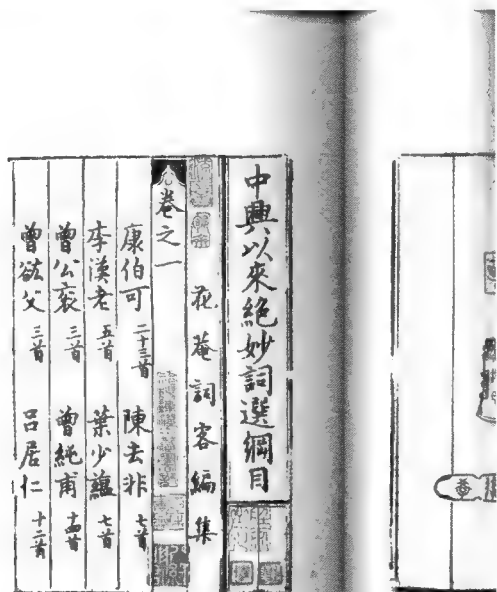 中興以來絕妙詞選綱目
花菴詞客編集
卷之一
康伯可 二十三首 陳去非 七首
李漢老 五首 葉少蘊 七首
曾公袞 三首 曾純甫 十四首
曾欱父 三首 呂居仁 十二首